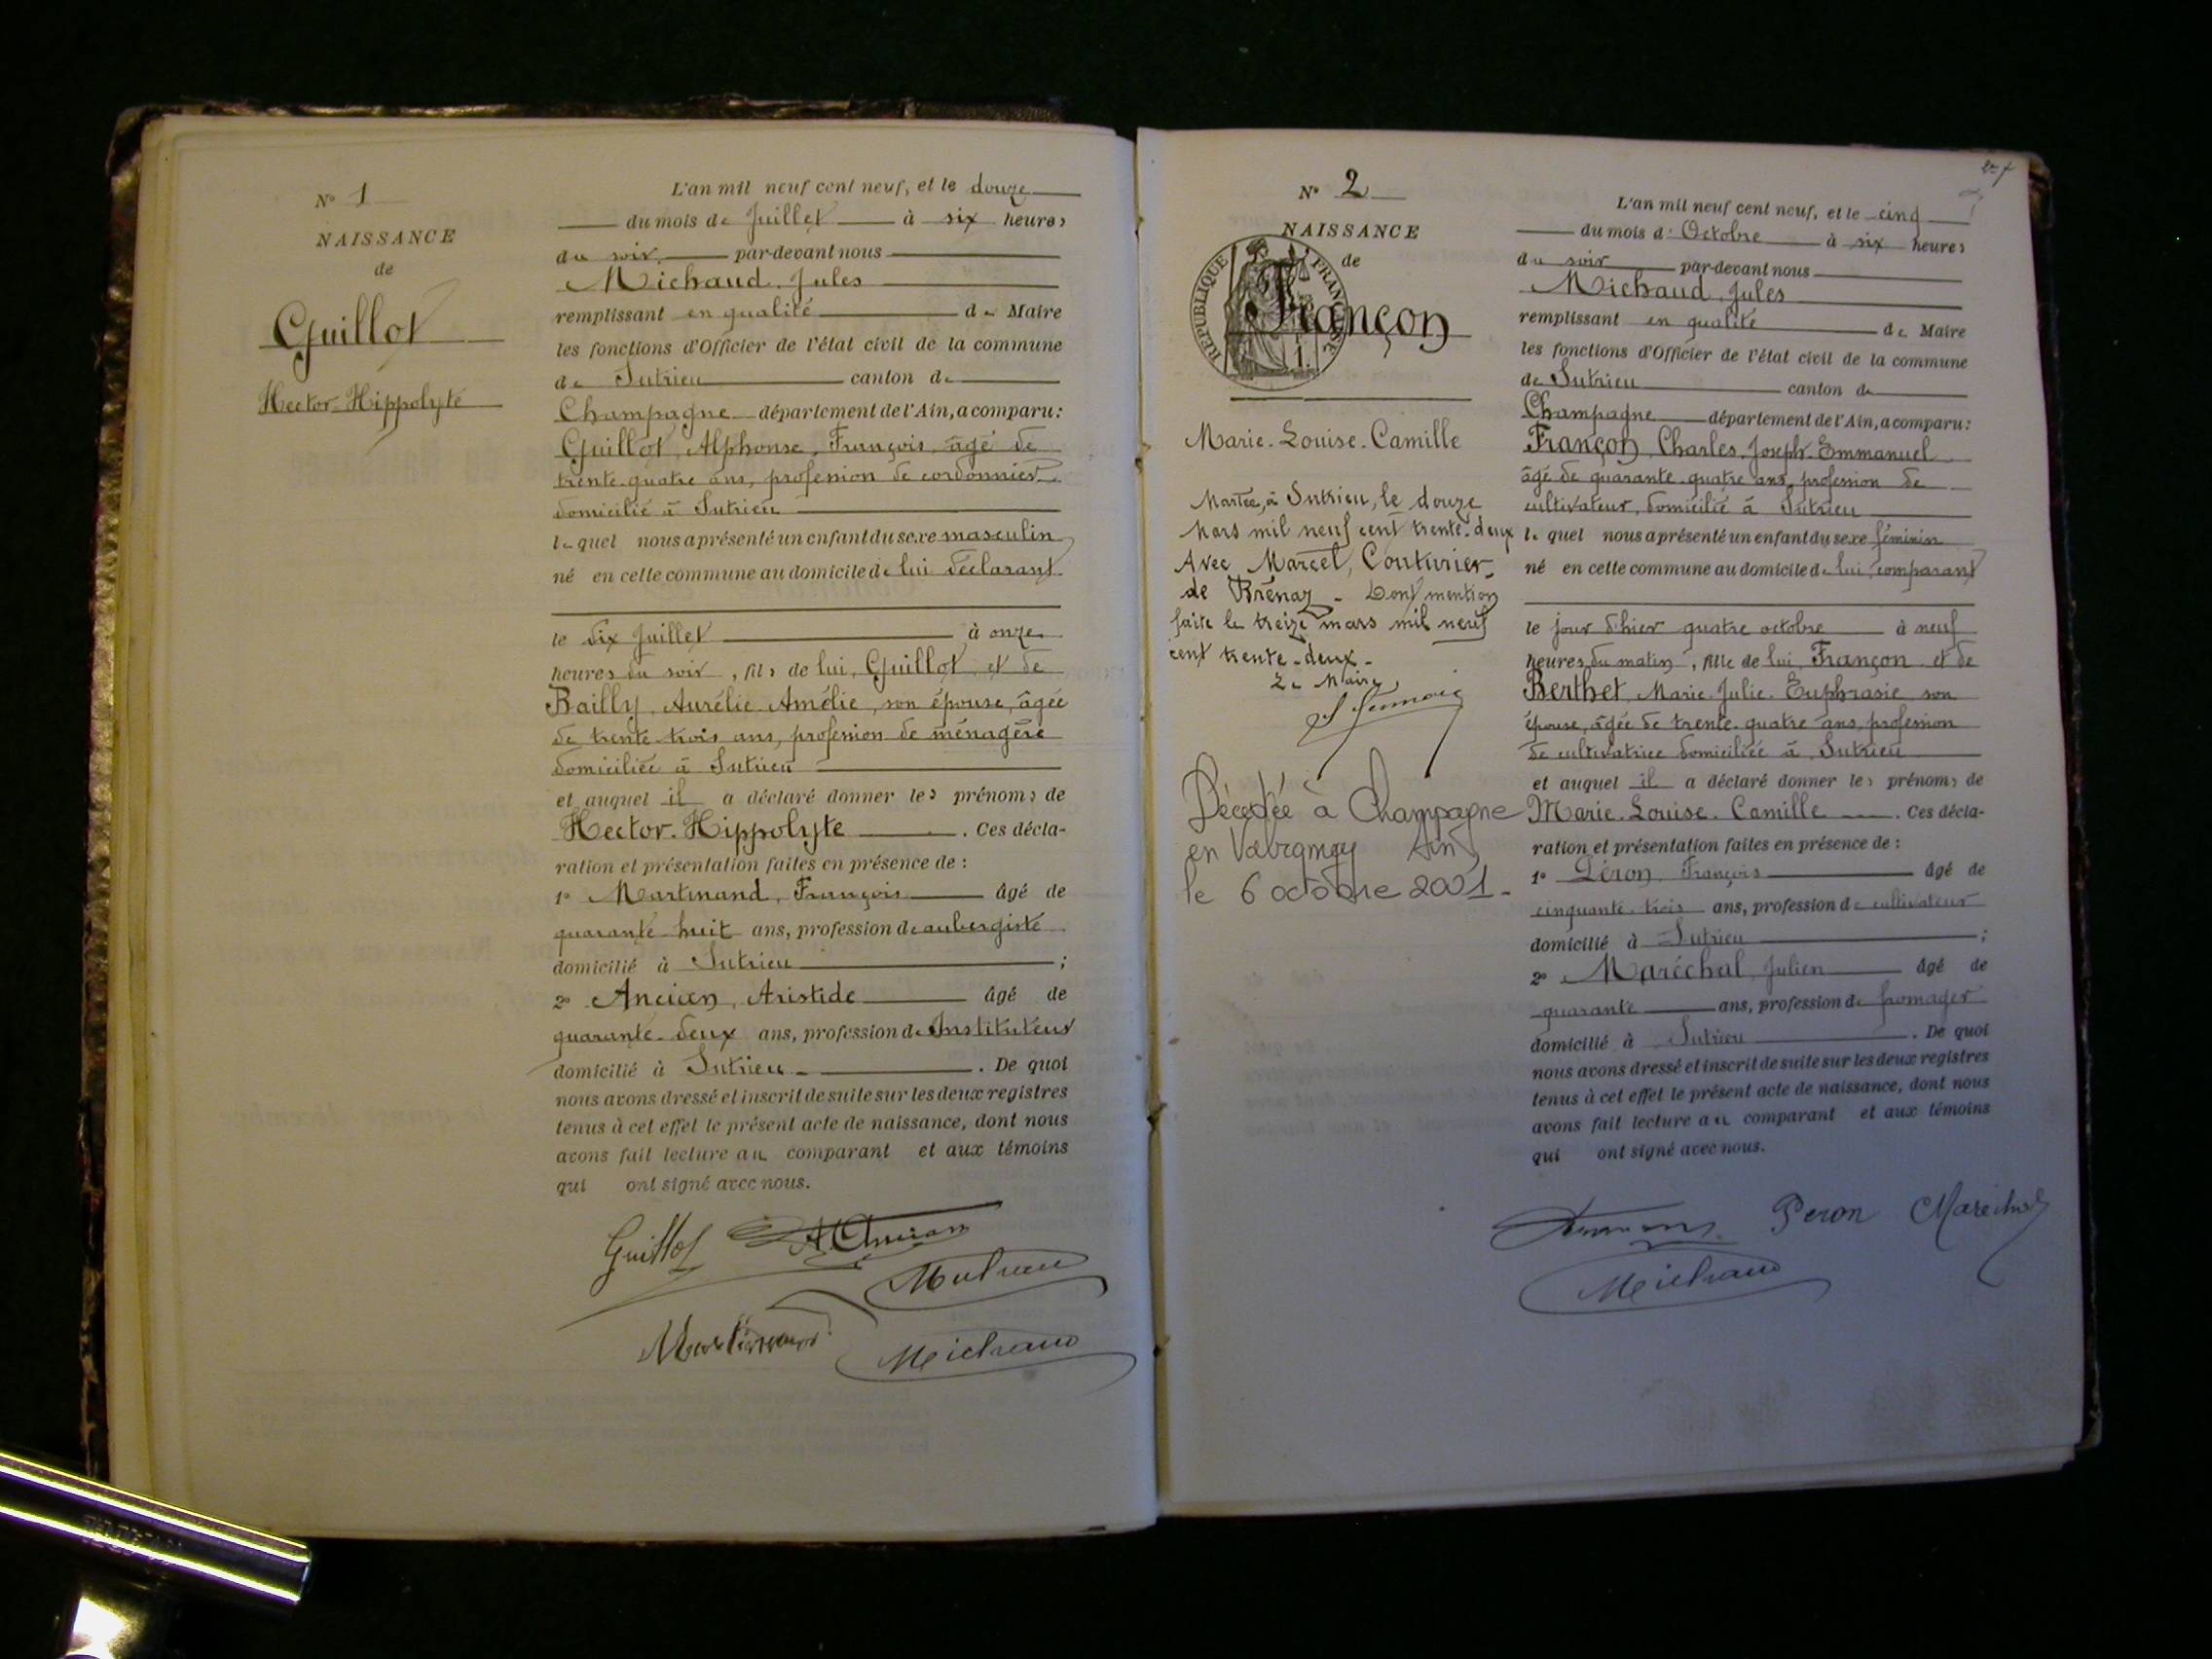 N° 1
NAISSANCE
de
Guillot
Hector-Hippolyte
L'an mil neuf cent neuf, et le douze
du mois de Juillet à six heures
du soir, par-devant nous
Michaud, Jules
remplissant en qualité de Maire
les fonctions d'Officier de l'état civil de la commune
de Sutrieu canton de
Champagne département de l'Ain, a comparu :
Guillot, Alphonse, François, âgé de
trente-quatre ans, profession de cordonnier
domicilié à Sutrieu
lequel nous a présenté un enfant du sexe masculin
né en cette commune au domicile de lui déclarant
le dix Juillet à onze
heures du soir, fils de lui, Guillot et de
Bailly, Aurélie-Amélie, son épouse, âgée
de trente-trois ans, profession de ménagère
domiciliée à Sutrieu
et auquel il a déclaré donner les prénoms de
Hector-Hippolyte. Ces décla-
ration et présentation faites en présence de :
1° Martinand, François âgé de
quarante-huit ans, profession de aubergiste
domicilié à Sutrieu ;
2° Ancian, Aristide âgé de
quarante-deux ans, profession de Instituteur
domicilié à Sutrieu. De quoi
nous avons dressé et inscrit de suite sur les deux registres
tenus à cet effet le présent acte de naissance, dont nous
avons fait lecture au comparant et aux témoins
qui ont signé avec nous.
Guillot A. Ancian
Michaud
Martinand Michaud
N° 2
NAISSANCE
de
RÉPUBLIQUE FRANÇAISE
Françon
Marie-Louise-Camille
Mariée, à Sutrieu, le douze
Mars mil neuf cent trente-deux
Avec Marcel, Couturier,
de Brénaz - Dont mention
faite le treize mars mil neuf
cent trente-deux -
Le Maire,
Décédée à Champagne
en Valromey Ain
le 6 octobre 2001 -
L'an mil neuf cent neuf, et le cinq
du mois d'Octobre à six heures
du soir par-devant nous
Michaud, Jules
remplissant en qualité de Maire
les fonctions d'Officier de l'état civil de la commune
de Sutrieu canton de
Champagne département de l'Ain, a comparu :
Françon, Charles, Joseph-Emmanuel
âgé de quarante-quatre ans, profession de
cultivateur, domicilié à Sutrieu
lequel nous a présenté un enfant du sexe féminin
né en cette commune au domicile de lui, comparant
le jour d'hier quatre octobre à neuf
heures du matin, fille de lui, Françon et de
Berthet, Marie-Julie-Euphrasie, son
épouse, âgée de trente-quatre ans, profession
de cultivatrice domiciliée à Sutrieu
et auquel il a déclaré donner les prénoms de
Marie-Louise-Camille. Ces décla-
ration et présentation faites en présence de :
1° Péron, François âgé de
cinquante-trois ans, profession de cultivateur
domicilié à Sutrieu ;
2° Maréchal, Julien âgé de
quarante ans, profession de fromager
domicilié à Sutrieu. De quoi
nous avons dressé et inscrit de suite sur les deux registres
tenus à cet effet le présent acte de naissance, dont nous
avons fait lecture au comparant et aux témoins
qui ont signé avec nous.
Peron Maréchal
Michaud